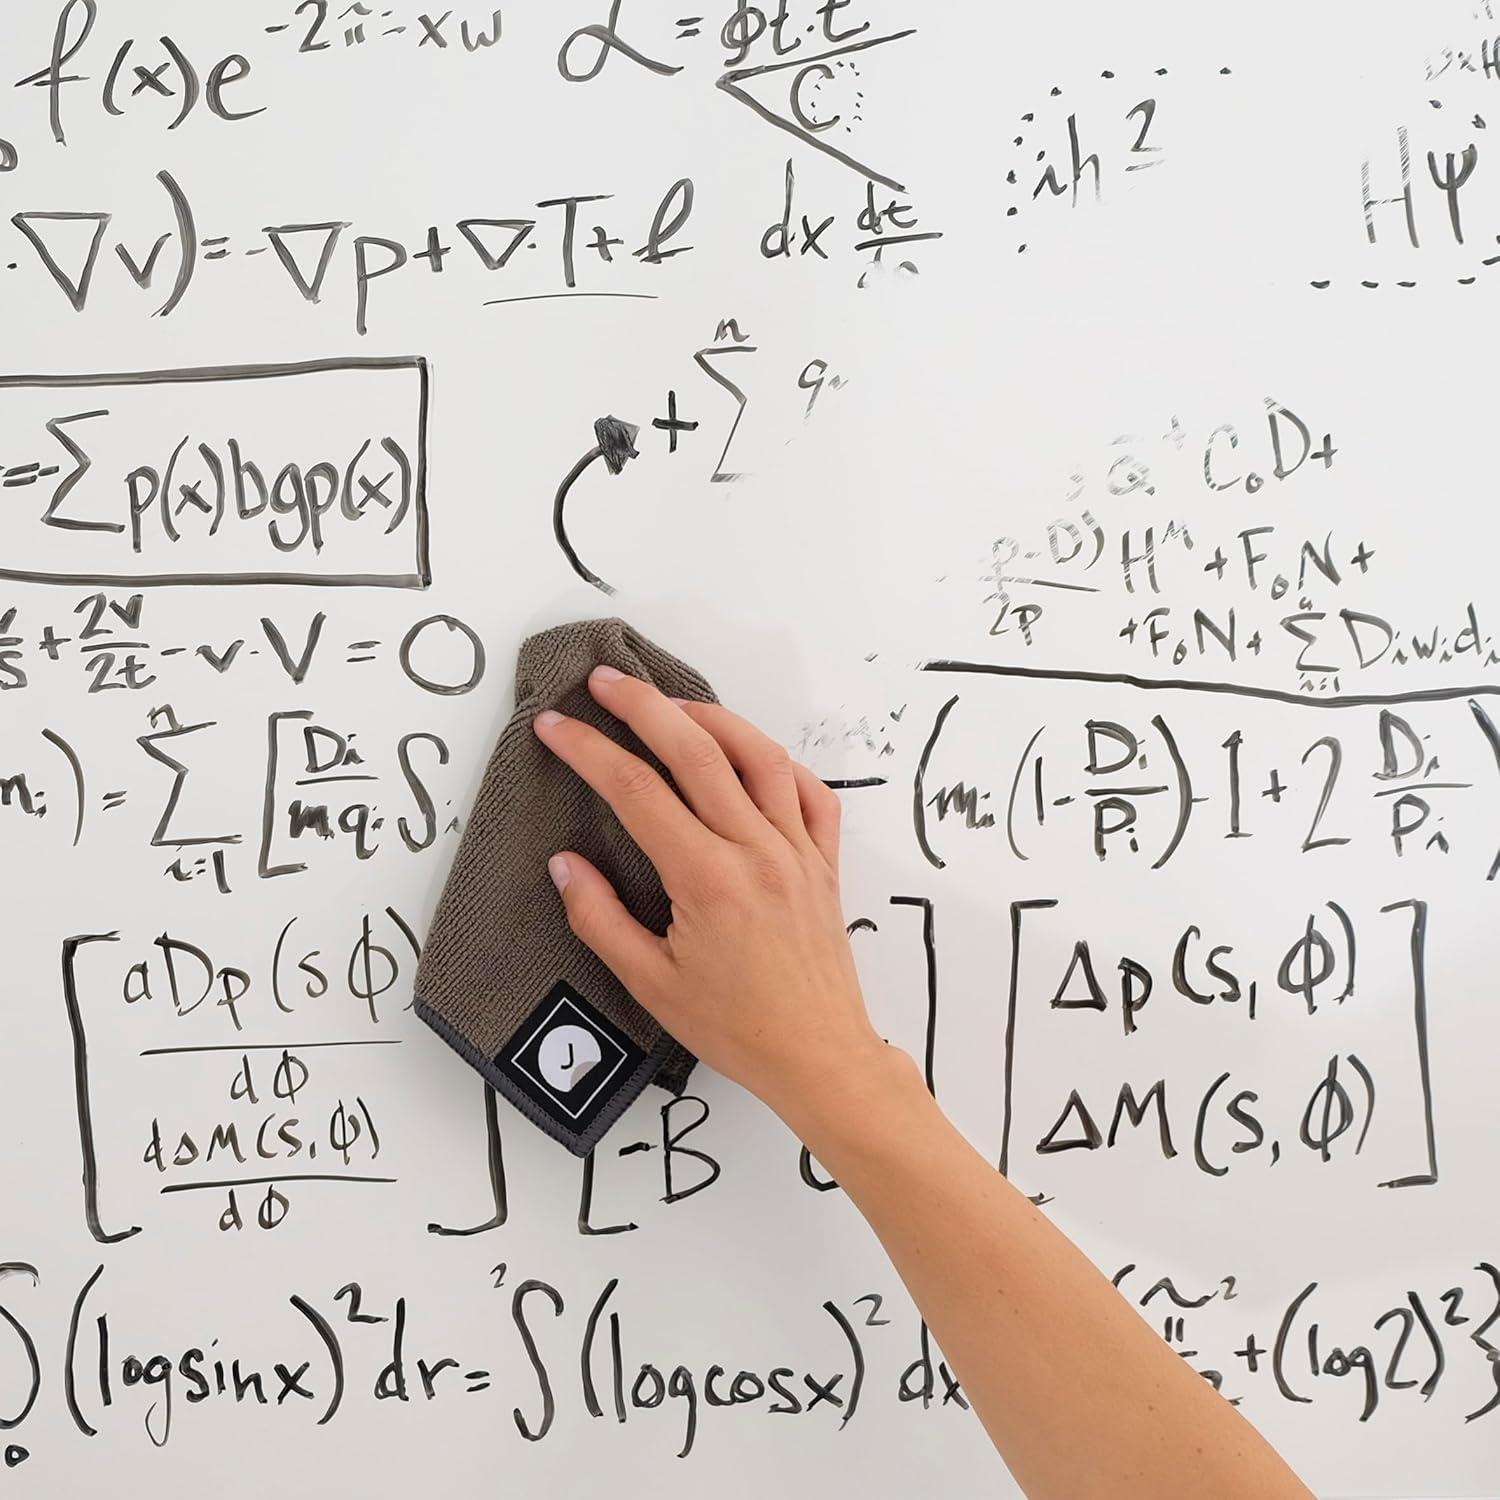 f(x)e^-2πi-xw
α = ϕt.t
C
iħ 2
.∇v)=-∇p+∇.T+f
dx dt
Hψ
=-∑p(x)bgp(x)
+∑ n
C₀D+
P-D) / 2P H^M +F₀N+
+F₀N+ ∑ i=1 Diwidi
+ 2v/2t -v.V = 0
mi) = ∑ n i=1 [Di/mqi ∫
(mi(1-Di/Pi)-1+2 Di/Pi
[aDp(sϕ)/dϕ
dΔM(s,ϕ)/dϕ]
[-B
[Δp(s,ϕ)
ΔM(s,ϕ)]
J
∫(logsinx)²dr= ²∫(logcosx)²dx
π² +(log2)²}